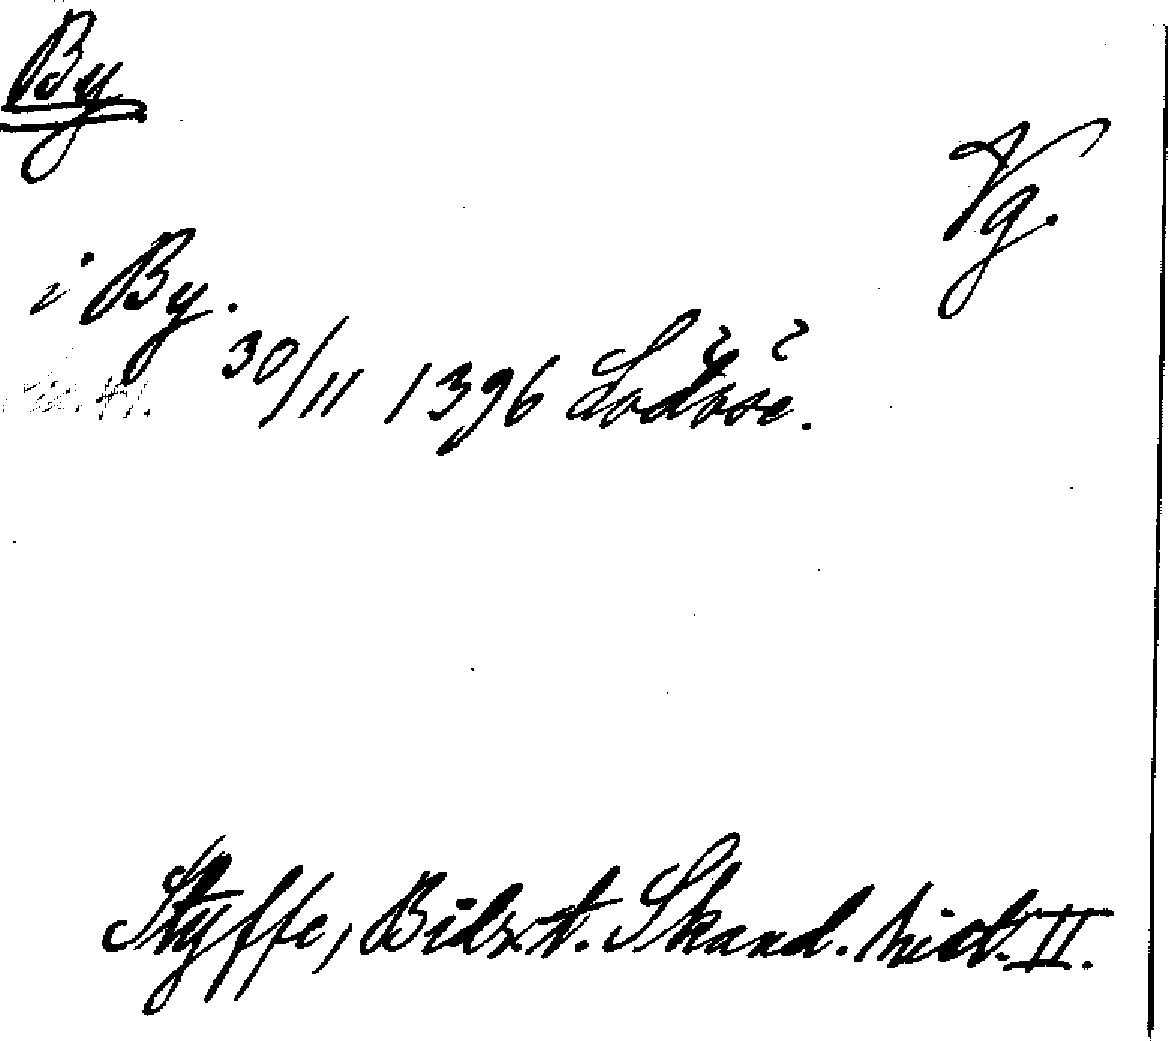 By
Vg.
i By.
30/11 1396 Lödöse.
Styffe, Bidr. t. Skand. hist. II.